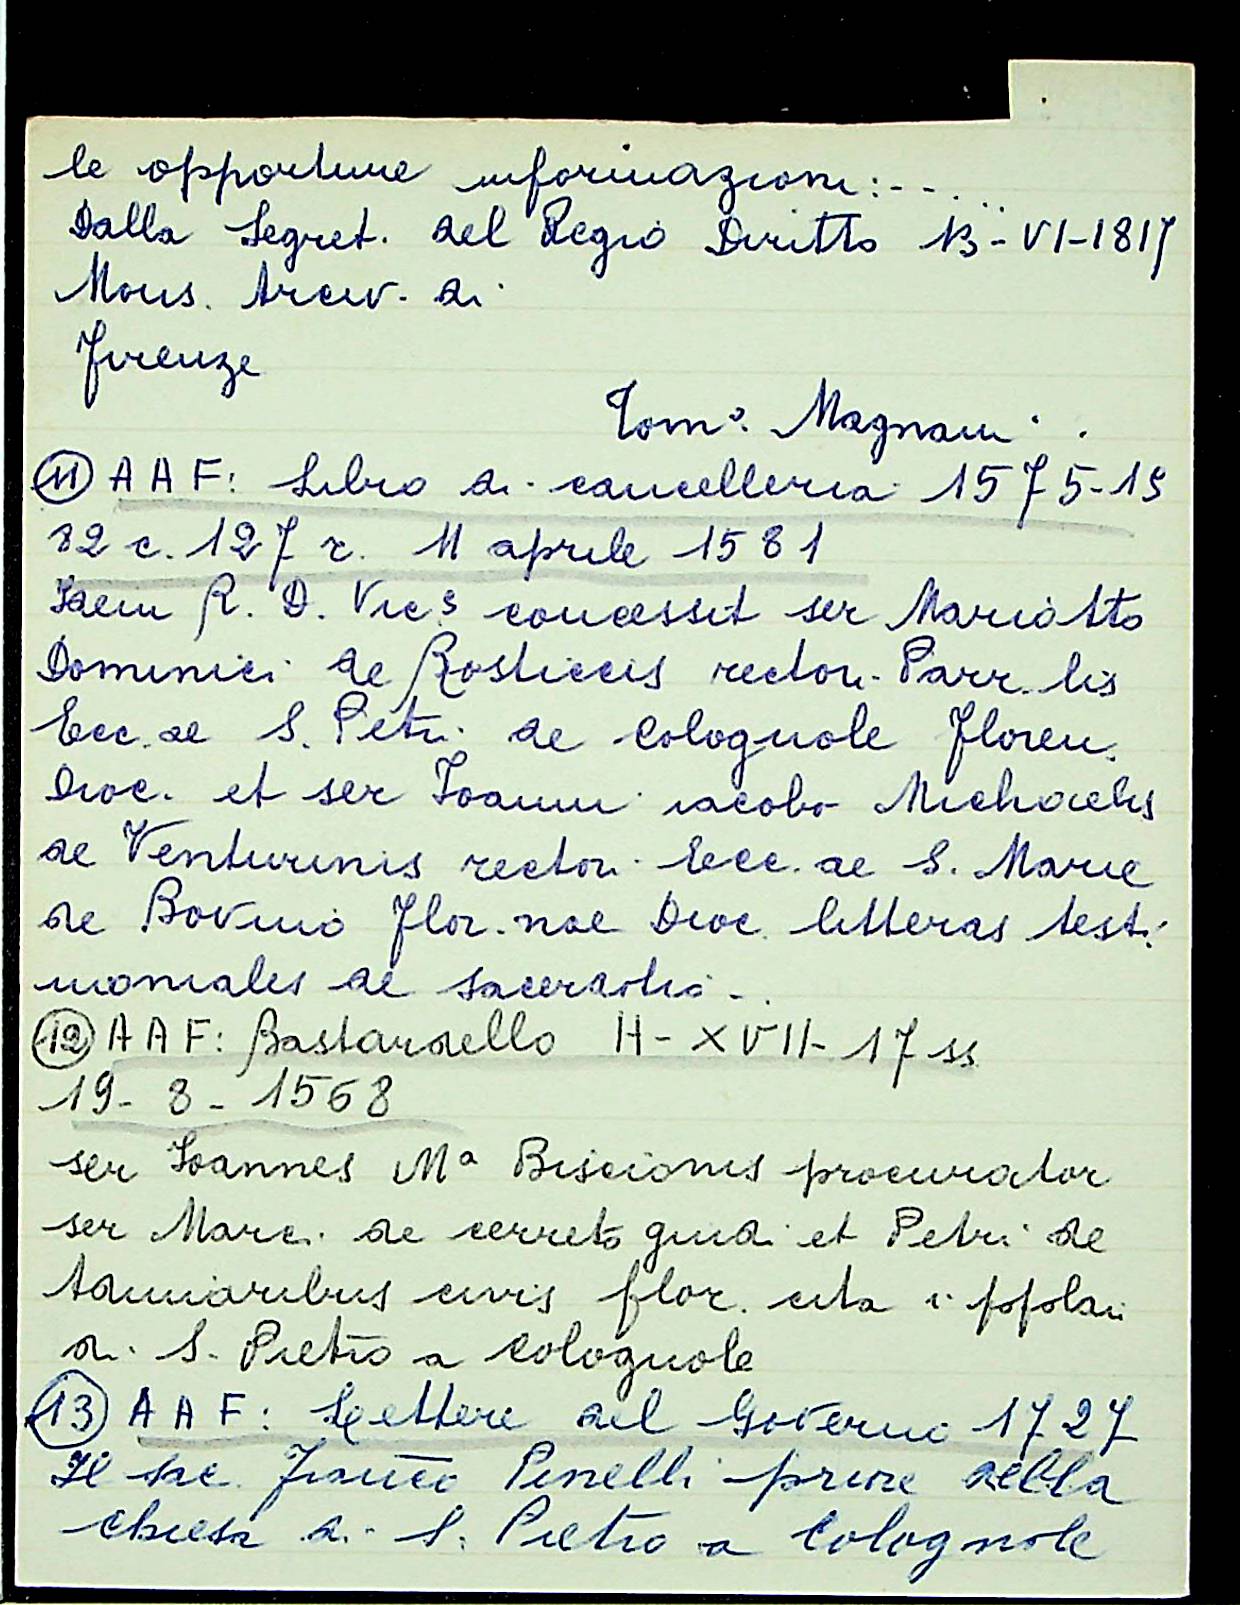 le opportune informazioni:--...
Dalla Segret. del Regio Diritto 13-VI-1817
Mons. Arciv. di
Firenze
Tom°. Magnani
11 AAF: Libro di cancelleria 1575-15
82 c. 127 r. 11 aprile 1581
Idem R. D. Vic.s concessit ser Mariotto
Dominici de Rosticcis rectori Parr.lis
Ecc.ae S. Petri de Colognole Floren.
Dioc. et ser Joanni iacobo Michaelis
de Venturinis rectori Ecc.ae S. Marie
de Bovino Flor.nae Dioc. litteras testi
moniales de sacerdotio..
12 AAF: Bastardello H-XVII-17 ss
19-8-1568
ser Joannes Mª Biscionis procurator
ser Marci de cerreto guidi et Petri de
Adimaribus civis flor. cita i popolani
di S. Pietro a Colognole
13 AAF: Lettere del Governo 1727
Il sac. Franc̄o Pinelli priore della
chiesa di S. Pietro a Colognole